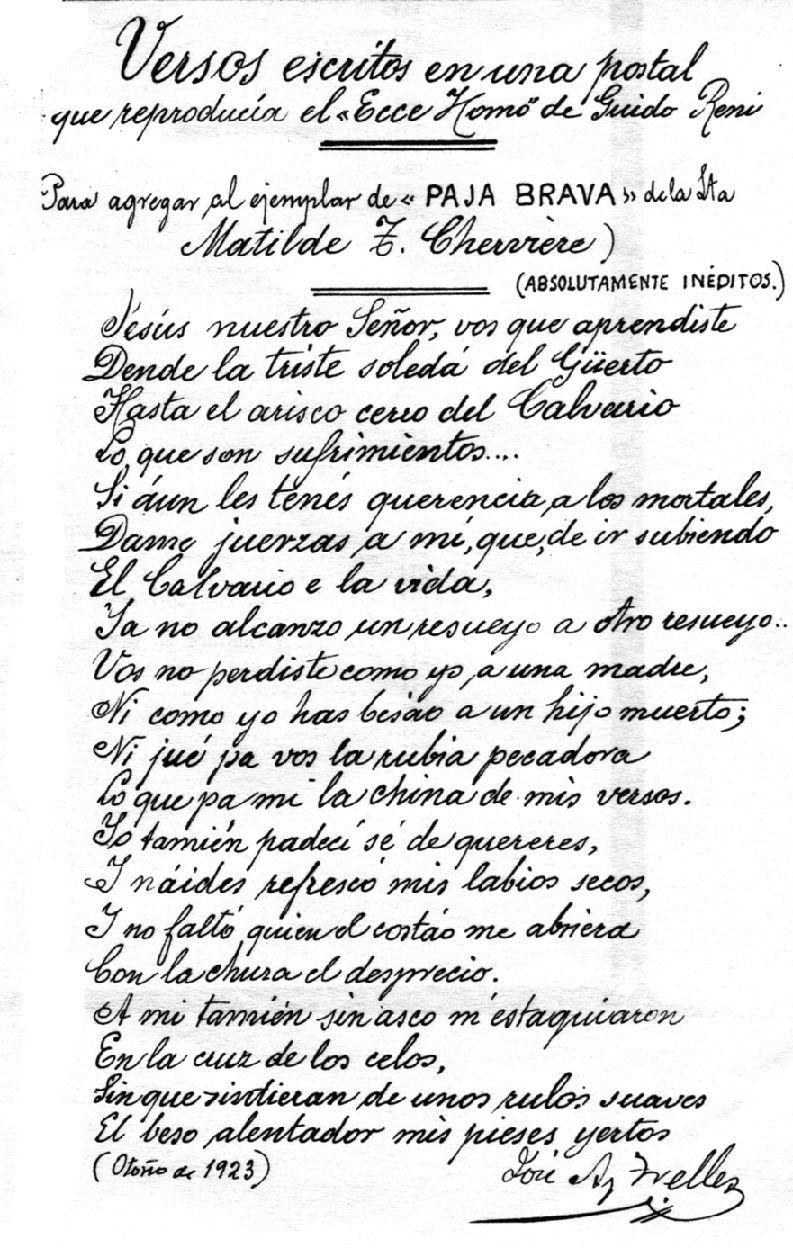 Versos escritos en una postal
que reproducía el «Ecce Homo» de Guido Reni
Para agregar al ejemplar de «PAJA BRAVA» de la Sta
Matilde Z. Chervière)
(ABSOLUTAMENTE INÉDITOS.)
Jesús nuestro Señor, vos que aprendiste
Dende la triste soledá del Güerto
Hasta el arisco cerco del Calvario
Lo que son sufrimientos....
Si áun les tenés querencia a los mortales,
Dame juerzas a mí, que, de ir subiendo
El Calvario e la vida,
Ya no alcanzo un resueyo a otro resueyo..
Vos no perdiste como yo, a una madre,
Ni como yo has besao a un hijo muerto;
Ni jué pa vos la rubia pecadora
Lo que pa mi la china de mis versos.
Yo tamién padecí sé de quereres,
I náides refrescó mis labios secos,
I no faltó quien el costáo me abriera
Con la chuza el desprecio.
A mi tamién sin asco m'estaquiaron
En la cruz de los celos,
Sin que sintieran de unos rulos suaves
El beso alentador mis pieses yertos
(Otoño de 1923)
José A y Trelles